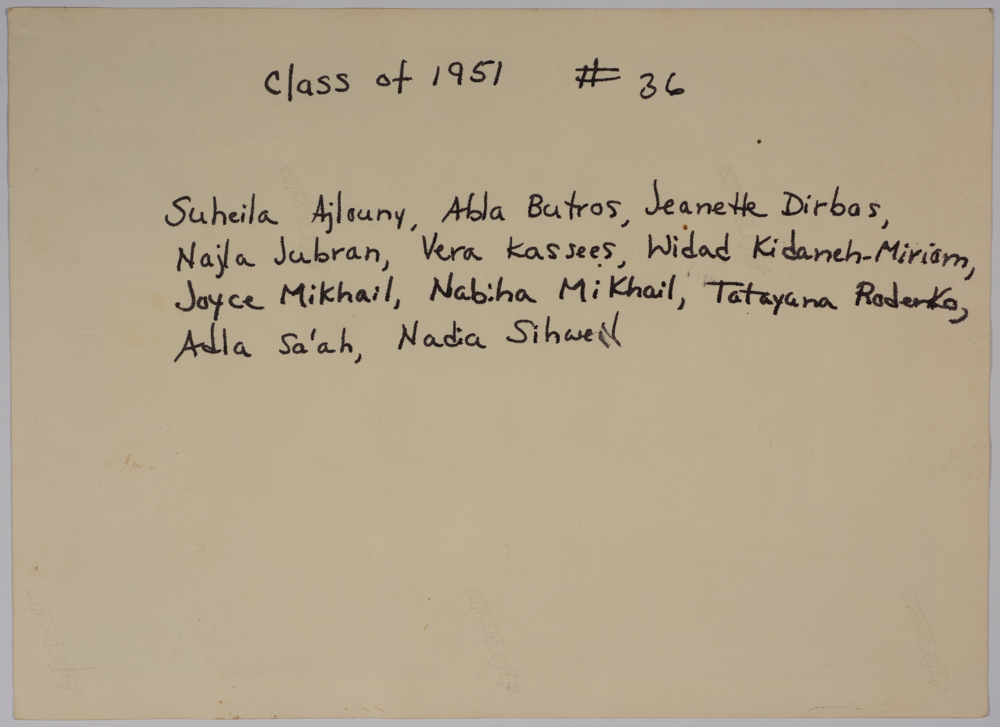 Class of 1951 # 36
Suheila Ajlouny, Abla Butros, Jeanette Dirbas,
Najla Jubran, Vera Kassees, Widad Kidaneh-Miriam,
Joyce Mikhail, Nabiha Mikhail, Tatayana Rodenko,
Adla Sa'ah, Nadia